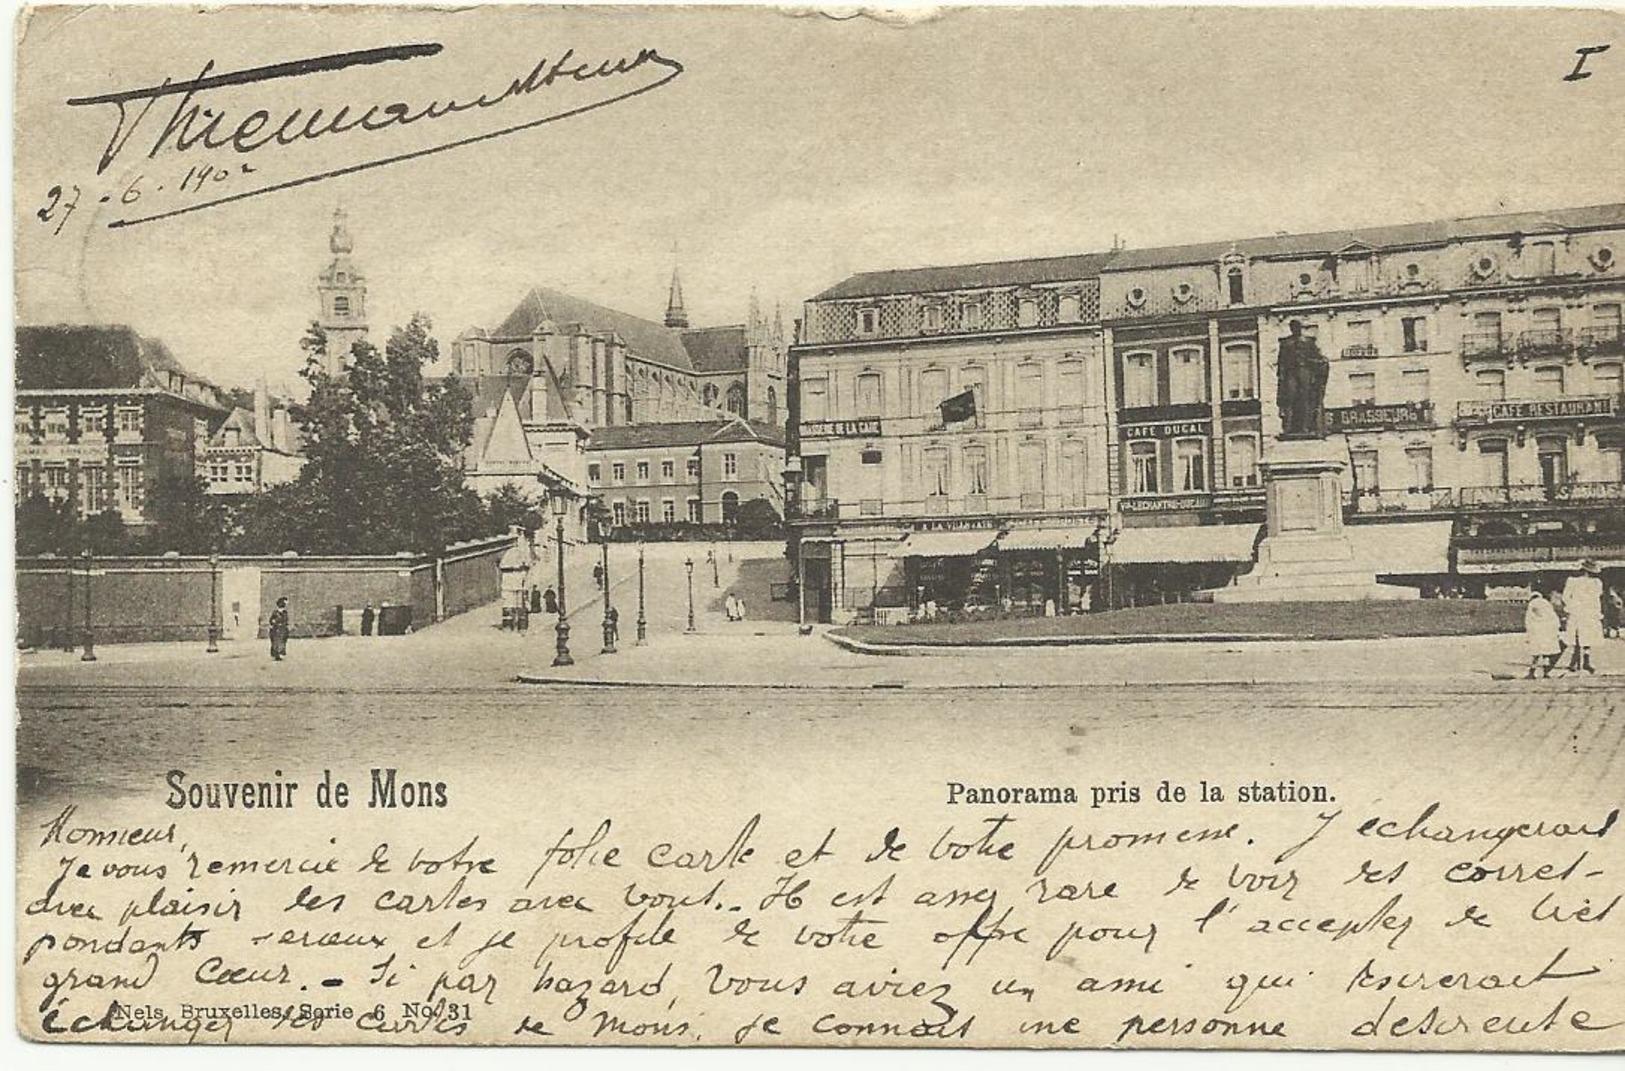 I
27-6-1902
BRASSERIE DE LA GARE
CAFÉ DUCAL
BRASSEURS
CAFÉ RESTAURANT
Souvenir de Mons
Panorama pris de la station.
Monsieur,
Je vous remercie de votre jolie carte et de votre promesse. J'échangerais
avec plaisir les cartes avec vous. - Il est assez rare de voir des corres-
pondants sérieux et je profite de votre offre pour l'accepter de très
grand Cœur. - Si par hazard, vous aviez un ami qui désirerait
échanger des cartes de Mons, je connais une personne désireuse
Nels, Bruxelles, Serie 6 No 31